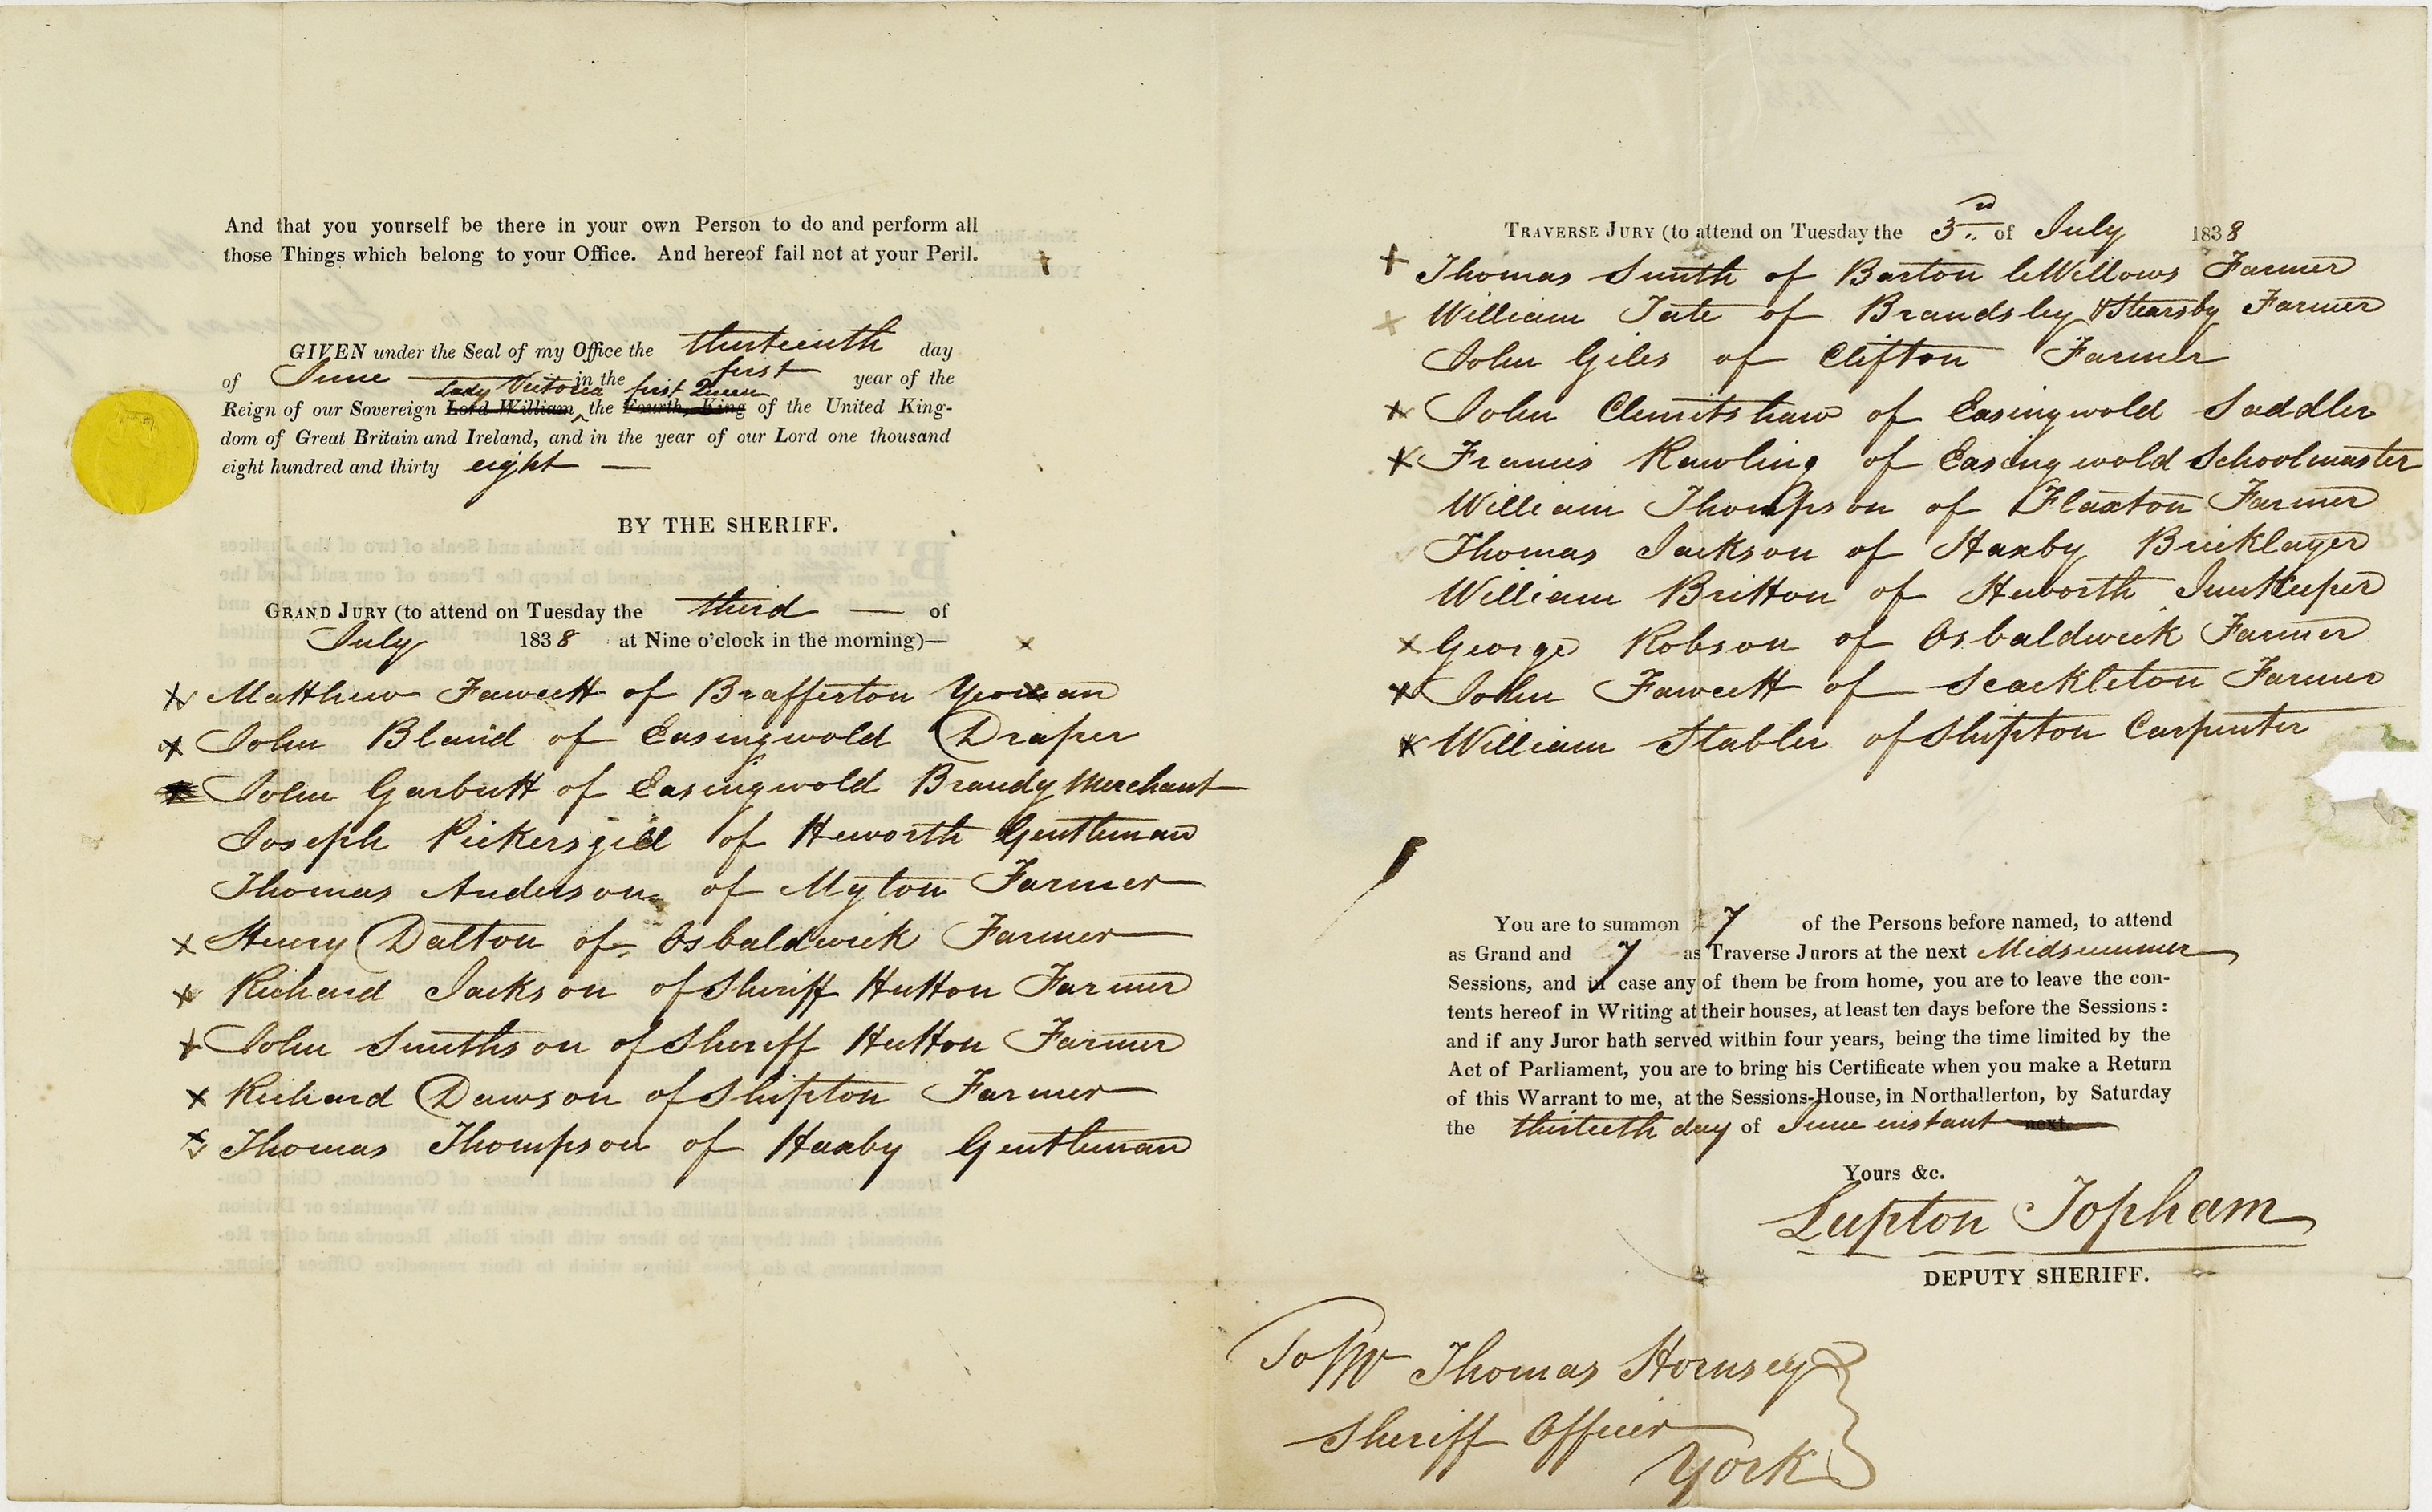 And that you yourself be there in your own Person to do and perform all
those Things which belong to your Office. And hereof fail not at your Peril.
GIVEN under the Seal of my Office the thirteenth day
of June in the first year of the
Lady Victoria first, Queen
Reign of our Sovereign Lord William ‸ the Fourth, King of the United King-
dom of Great Britain and Ireland, and in the year of our Lord one thousand
eight hundred and thirty eight —
BY THE SHERIFF.
GRAND JURY (to attend on Tuesday the third — of
July 1838 at Nine o'clock in the morning)—
x Matthew Fawcett of Brafferton Yeoman
x John Bland of Easingwold Draper
John Garbutt of Easingwold Brandy Merchant
Joseph Pickersgill of Heworth Gentleman
Thomas Anderson of Myton Farmer
x Henry Dalton of Osbaldwick Farmer
x Richard Jackson of Sheriff Hutton Farmer
x John Smithson of Sheriff Hutton Farmer
x Richard Dawson of Shipton Farmer
x Thomas Thompson of Haxby Gentleman
TRAVERSE JURY (to attend on Tuesday the 3rd of July 1838
x Thomas Smith of Barton le Willows Farmer
x William Tate of Brandsby & Stearsby Farmer
John Giles of Clifton Farmer
x John Clemitshaw of Easingwold Saddler
x Francis Rawling of Easingwold Schoolmaster
William Thompson of Flaxton Farmer
Thomas Jackson of Haxby Bricklayer
William Britton of Heworth InnKeeper
x George Robson of Osbaldwick Farmer
x John Fawcett of Scackleton Farmer
x William Stabler of Shipton Carpenter
You are to summon 7 of the Persons before named, to attend
as Grand and 7 as Traverse Jurors at the next Midsummer
Sessions, and in case any of them be from home, you are to leave the con-
tents hereof in Writing at their houses, at least ten days before the Sessions:
and if any Juror hath served within four years, being the time limited by the
Act of Parliament, you are to bring his Certificate when you make a Return
of this Warrant to me, at the Sessions-House, in Northallerton, by Saturday
the thirtieth day of June instant next.
Yours &c.
Lupton Topham
DEPUTY SHERIFF.
To Mr Thomas Hornsey
Sheriff Officer
York